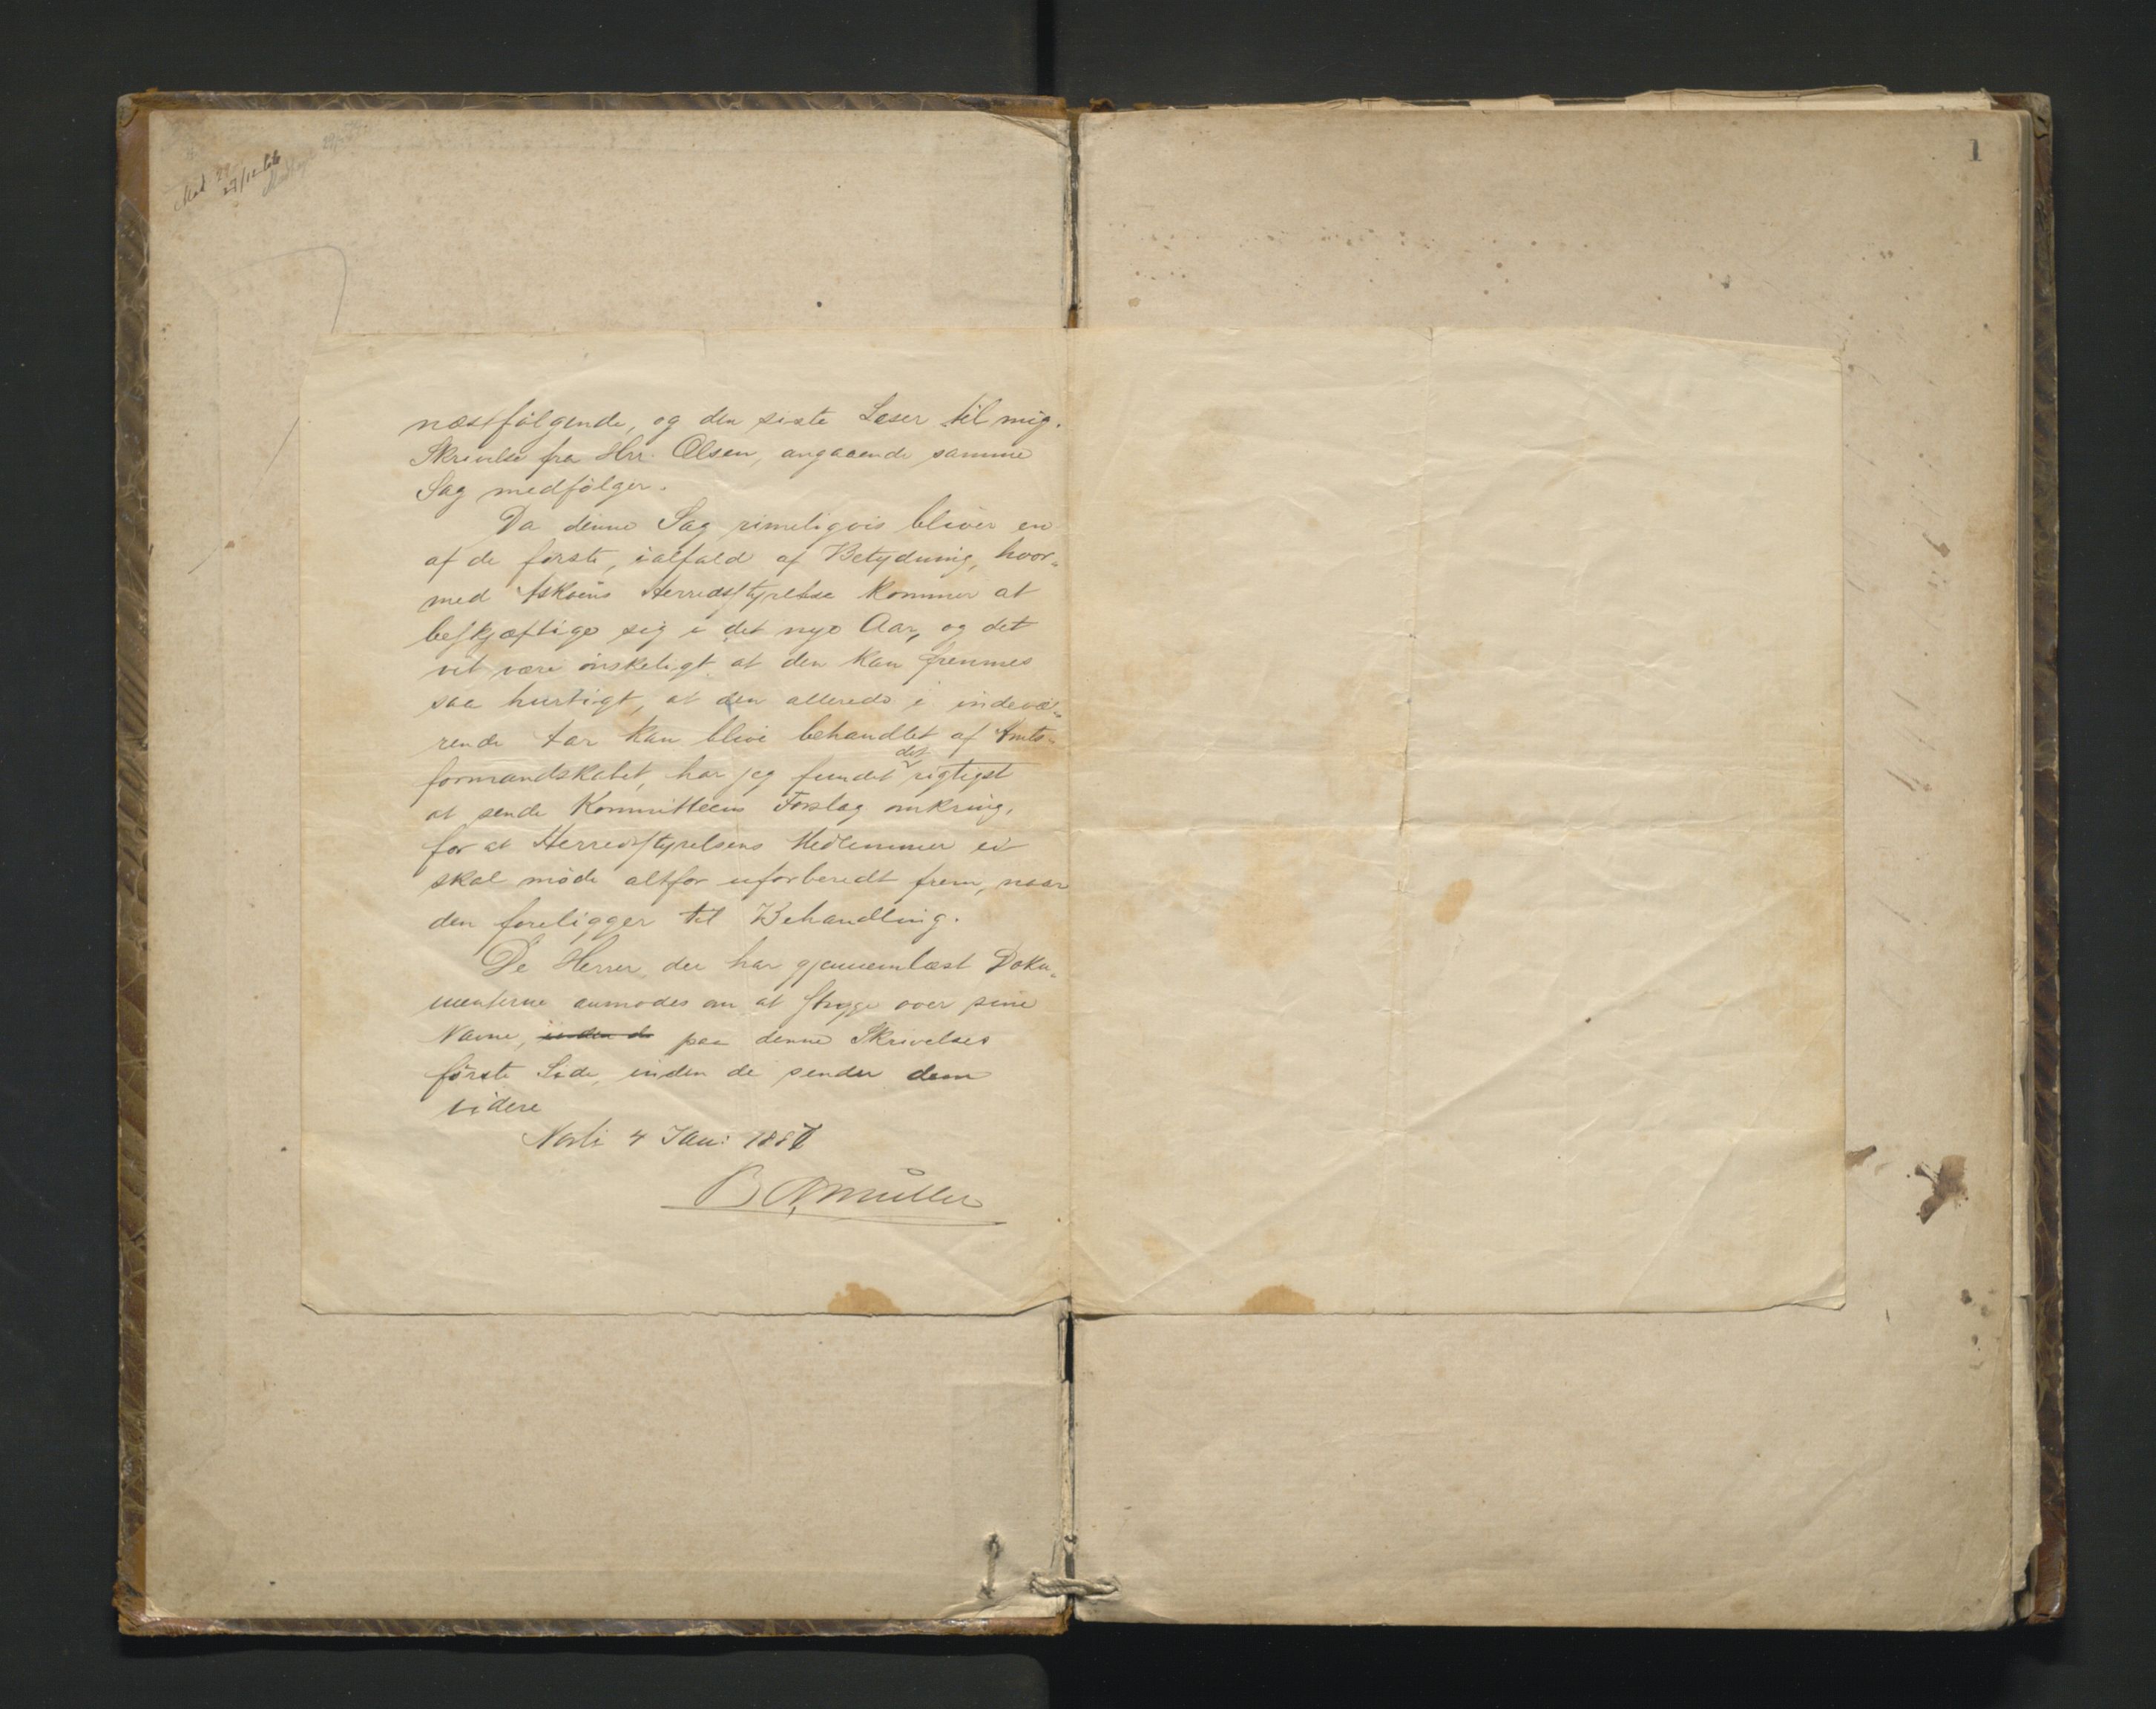 1
næstfølgende, og den siste Læser til mig.
Skrivelse fra Hrr. Olsen, angaaende samme
Sag medfølger.
Da denne Sag rimeligvis bliver en
af de første, ialfald af Betydning, hvor„
med Askøens Herredsstyrelse kommer at
beskjæftige sig i det nye Aar, og det
vil være ønskeligt at den kan fremmes
saa hurtigt, at den allerede i indevæ„
rende Aar kan blive behandlet af Amts„
formandskabet, har jeg fundet det rigtigst
at sende Kommitteens Forslag omkring,
for at Herredsstyrelsens Medlemmer ei
skal møde altfor uforberedt frem, naar
den foreligger til Behandling.
De Herrer der har gjennemlæst Doku„
menterne anmodes om at stryge over sine
Navne, inden de paa denne Skrivelses
første Side, inden de sender dem
videre
4 Jan: 1887
Müller